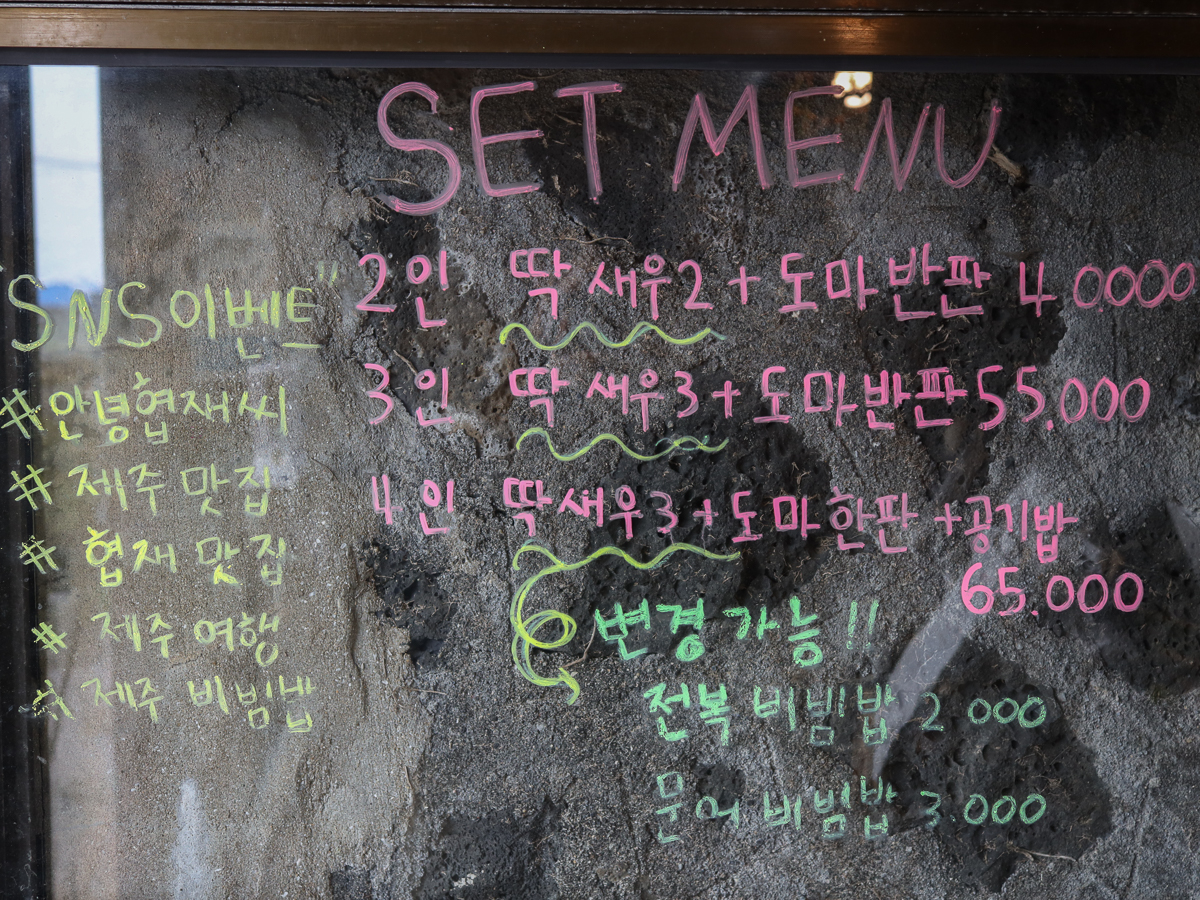 SET MENU
2인 딱새우2 + 도마반판 4 0.000
3인 딱새우3 + 도마반판 55.000
4인 딱새우3 + 도마한판 + 공기밥
65.000
변경 가능 !!
전복 비빔밥 2 000
문어 비빔밥 3.000
"SNS 이벤트"
#안녕협재씨
# 제주 맛집
# 협재 맛집
# 제주 여행
# 제주 비빔밥